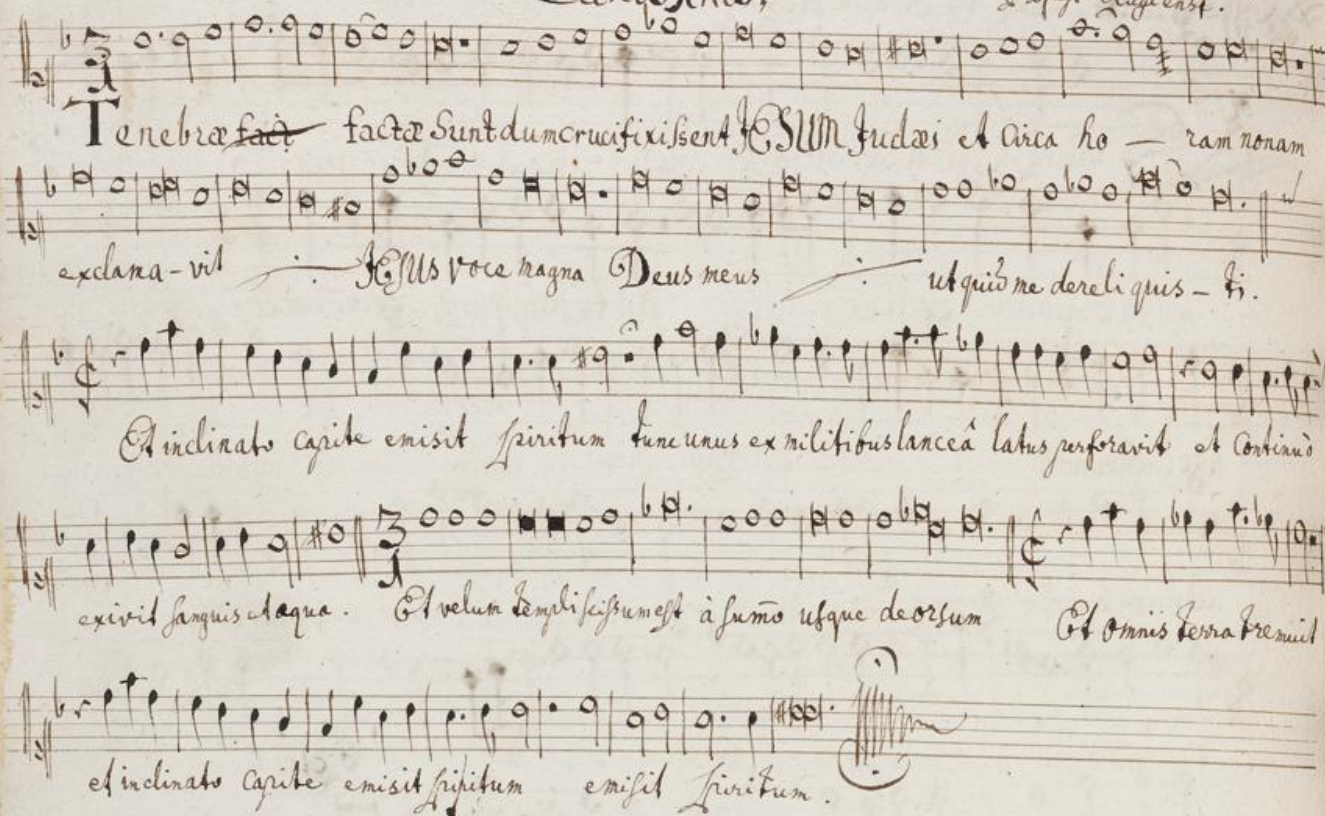 Tenebræ fact factæ Sunt dum crucifixissent JESUM Judæi et Circa ho — ram nonam
exclama - vit JESUS voce magna Deus meus ut quid me dereliquis - ti.
Et inclinato capite emisit spiritum tunc unus ex militibus lanceâ latus perforavit et Continuò
exivit sanguis et aqua. Et velum templi scissum est à sum̄o usque deorsum Et omnis terra tremuit
et inclinato capite emisit spiritum emisit spiritum.